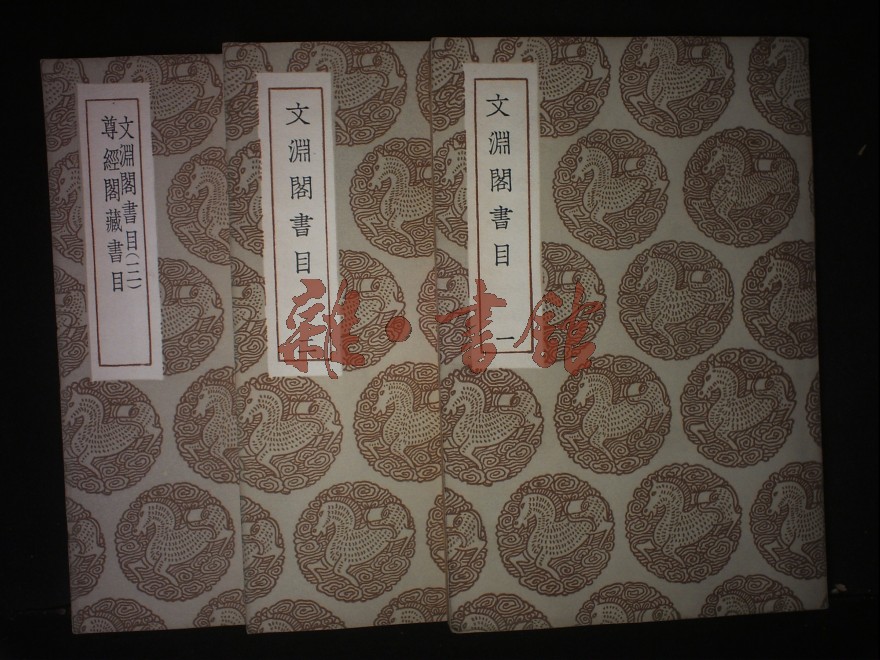 文淵閣書目 一
文淵閣書目
文淵閣書目(三)
尊經閣藏書目
雜·書館